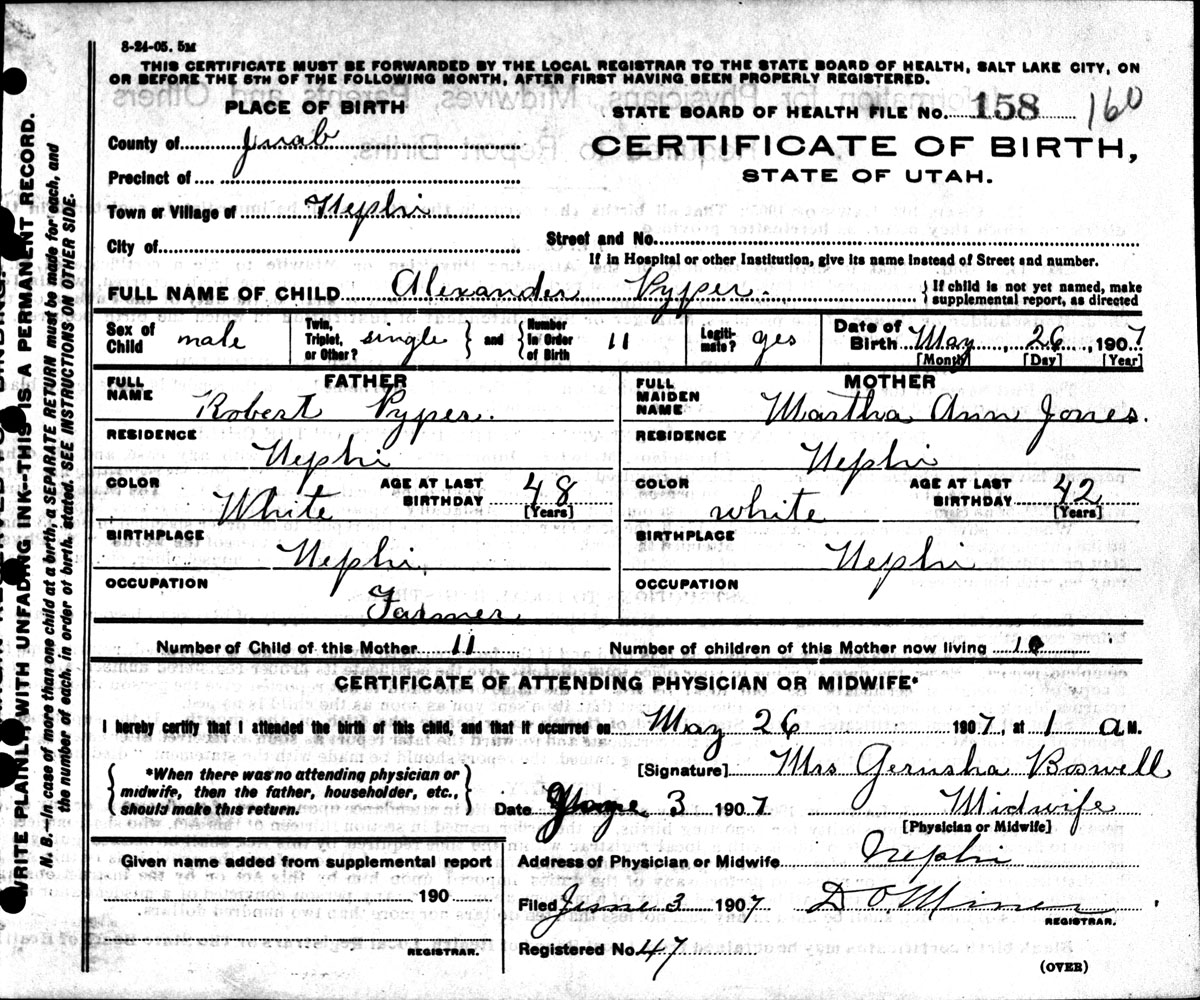 8-24-05. 5M
THIS CERTIFICATE MUST BE FORWARDED BY THE LOCAL REGISTRAR TO THE STATE BOARD OF HEALTH, SALT LAKE CITY, ON
OR BEFORE THE 5TH OF THE FOLLOWING MONTH, AFTER FIRST HAVING BEEN PROPERLY REGISTERED.
PLACE OF BIRTH
STATE BOARD OF HEALTH FILE NO. 158 160
County of Juab
CERTIFICATE OF BIRTH,
STATE OF UTAH.
Precinct of
Town or Village of Nephi
City of
Street and No.
If in Hospital or other Institution, give its name instead of Street and number.
FULL NAME OF CHILD Alexander Pyper.
If child is not yet named, make
supplemental report, as directed
Sex of Child male
Twin, Triplet, or Other? single and Number in Order of Birth 11
Legiti-mate? yes
Date of Birth May 26, 1907
[Month] [Day] [Year]
FATHER
FULL NAME Robert Pyper.
RESIDENCE Nephi
COLOR White
AGE AT LAST BIRTHDAY 48 [Years]
BIRTHPLACE Nephi
OCCUPATION Farmer
MOTHER
FULL MAIDEN NAME Martha Ann Jones.
RESIDENCE Nephi
COLOR white
AGE AT LAST BIRTHDAY 42 [Years]
BIRTHPLACE Nephi
OCCUPATION
Number of Child of this Mother 11
Number of children of this Mother now living 10
CERTIFICATE OF ATTENDING PHYSICIAN OR MIDWIFE*
I hereby certify that I attended the birth of this child, and that it occurred on May 26 1907, at 1 a M.
*When there was no attending physician or
midwife, then the father, householder, etc.,
should make this return.
[Signature] Mrs Gerusha Boswell
Date 3 1907 Midwife
[Physician or Midwife]
Given name added from supplemental report
190
REGISTRAR.
Address of Physician or Midwife Nephi
Filed June 3 1907 D O Miner
REGISTRAR.
Registered No. 47
(OVER)
WRITE PLAINLY, WITH UNFADING INK--THIS IS A PERMANENT RECORD.
N. B.--In case of more than one child at a birth, a SEPARATE RETURN must be made for each, and
the number of each, in order of birth, stated. SEE INSTRUCTIONS ON OTHER SIDE.